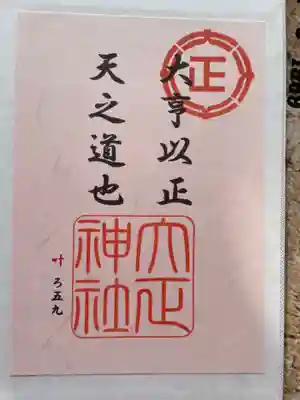 正
大亨以正
天之道也
大正
神社
叶
ろ五九